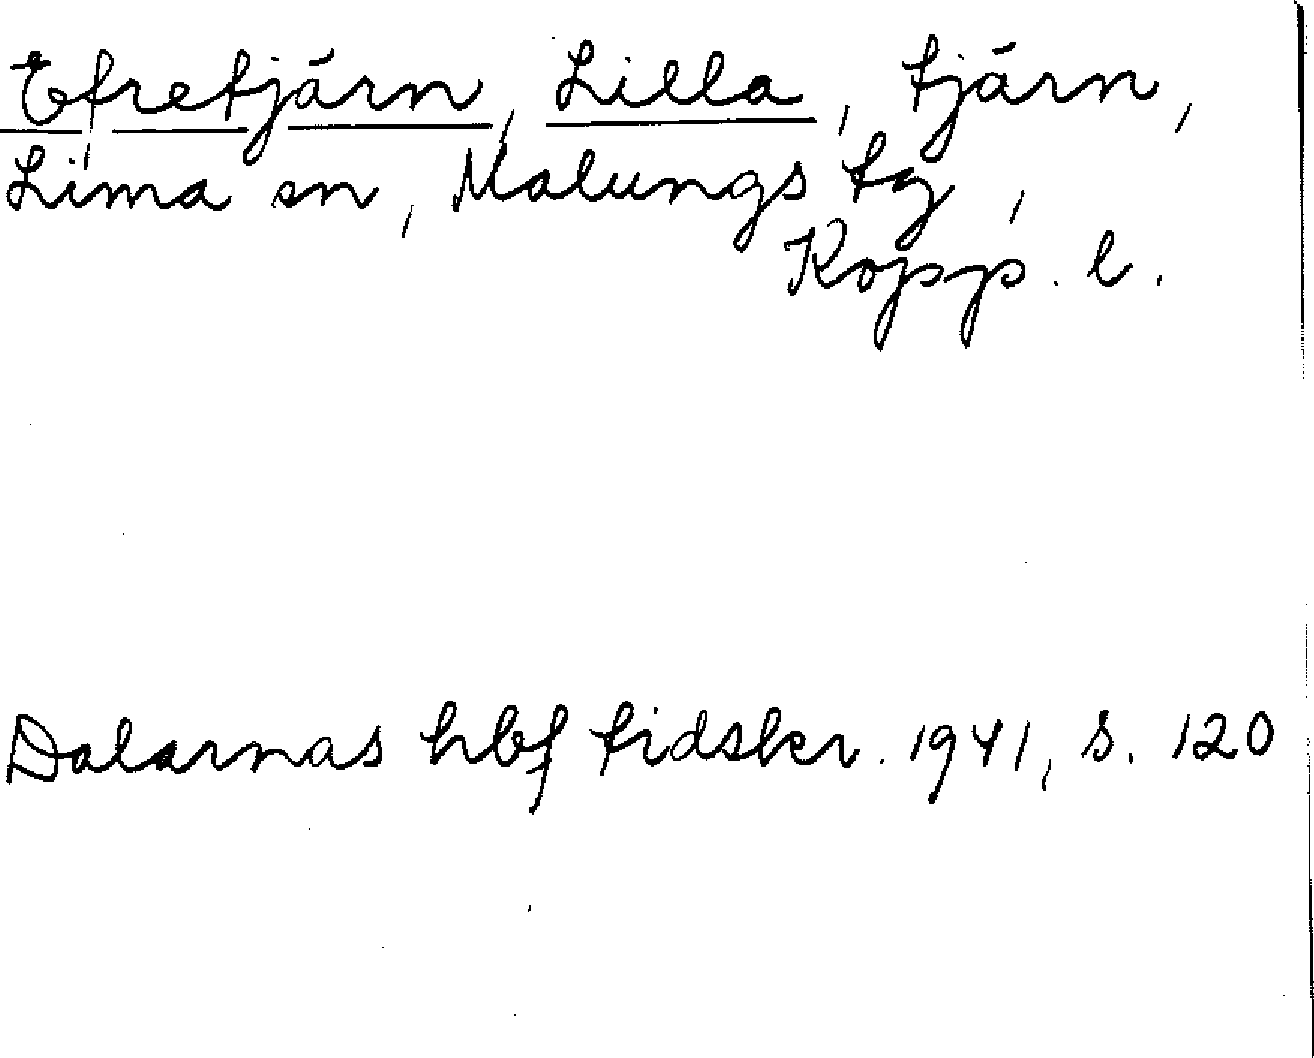 Efretjärn, Lilla, tjärn,
Lima sn, Malungs tg,
Kopp. l.
Dalarnas hbf tidskr. 1941, s. 120